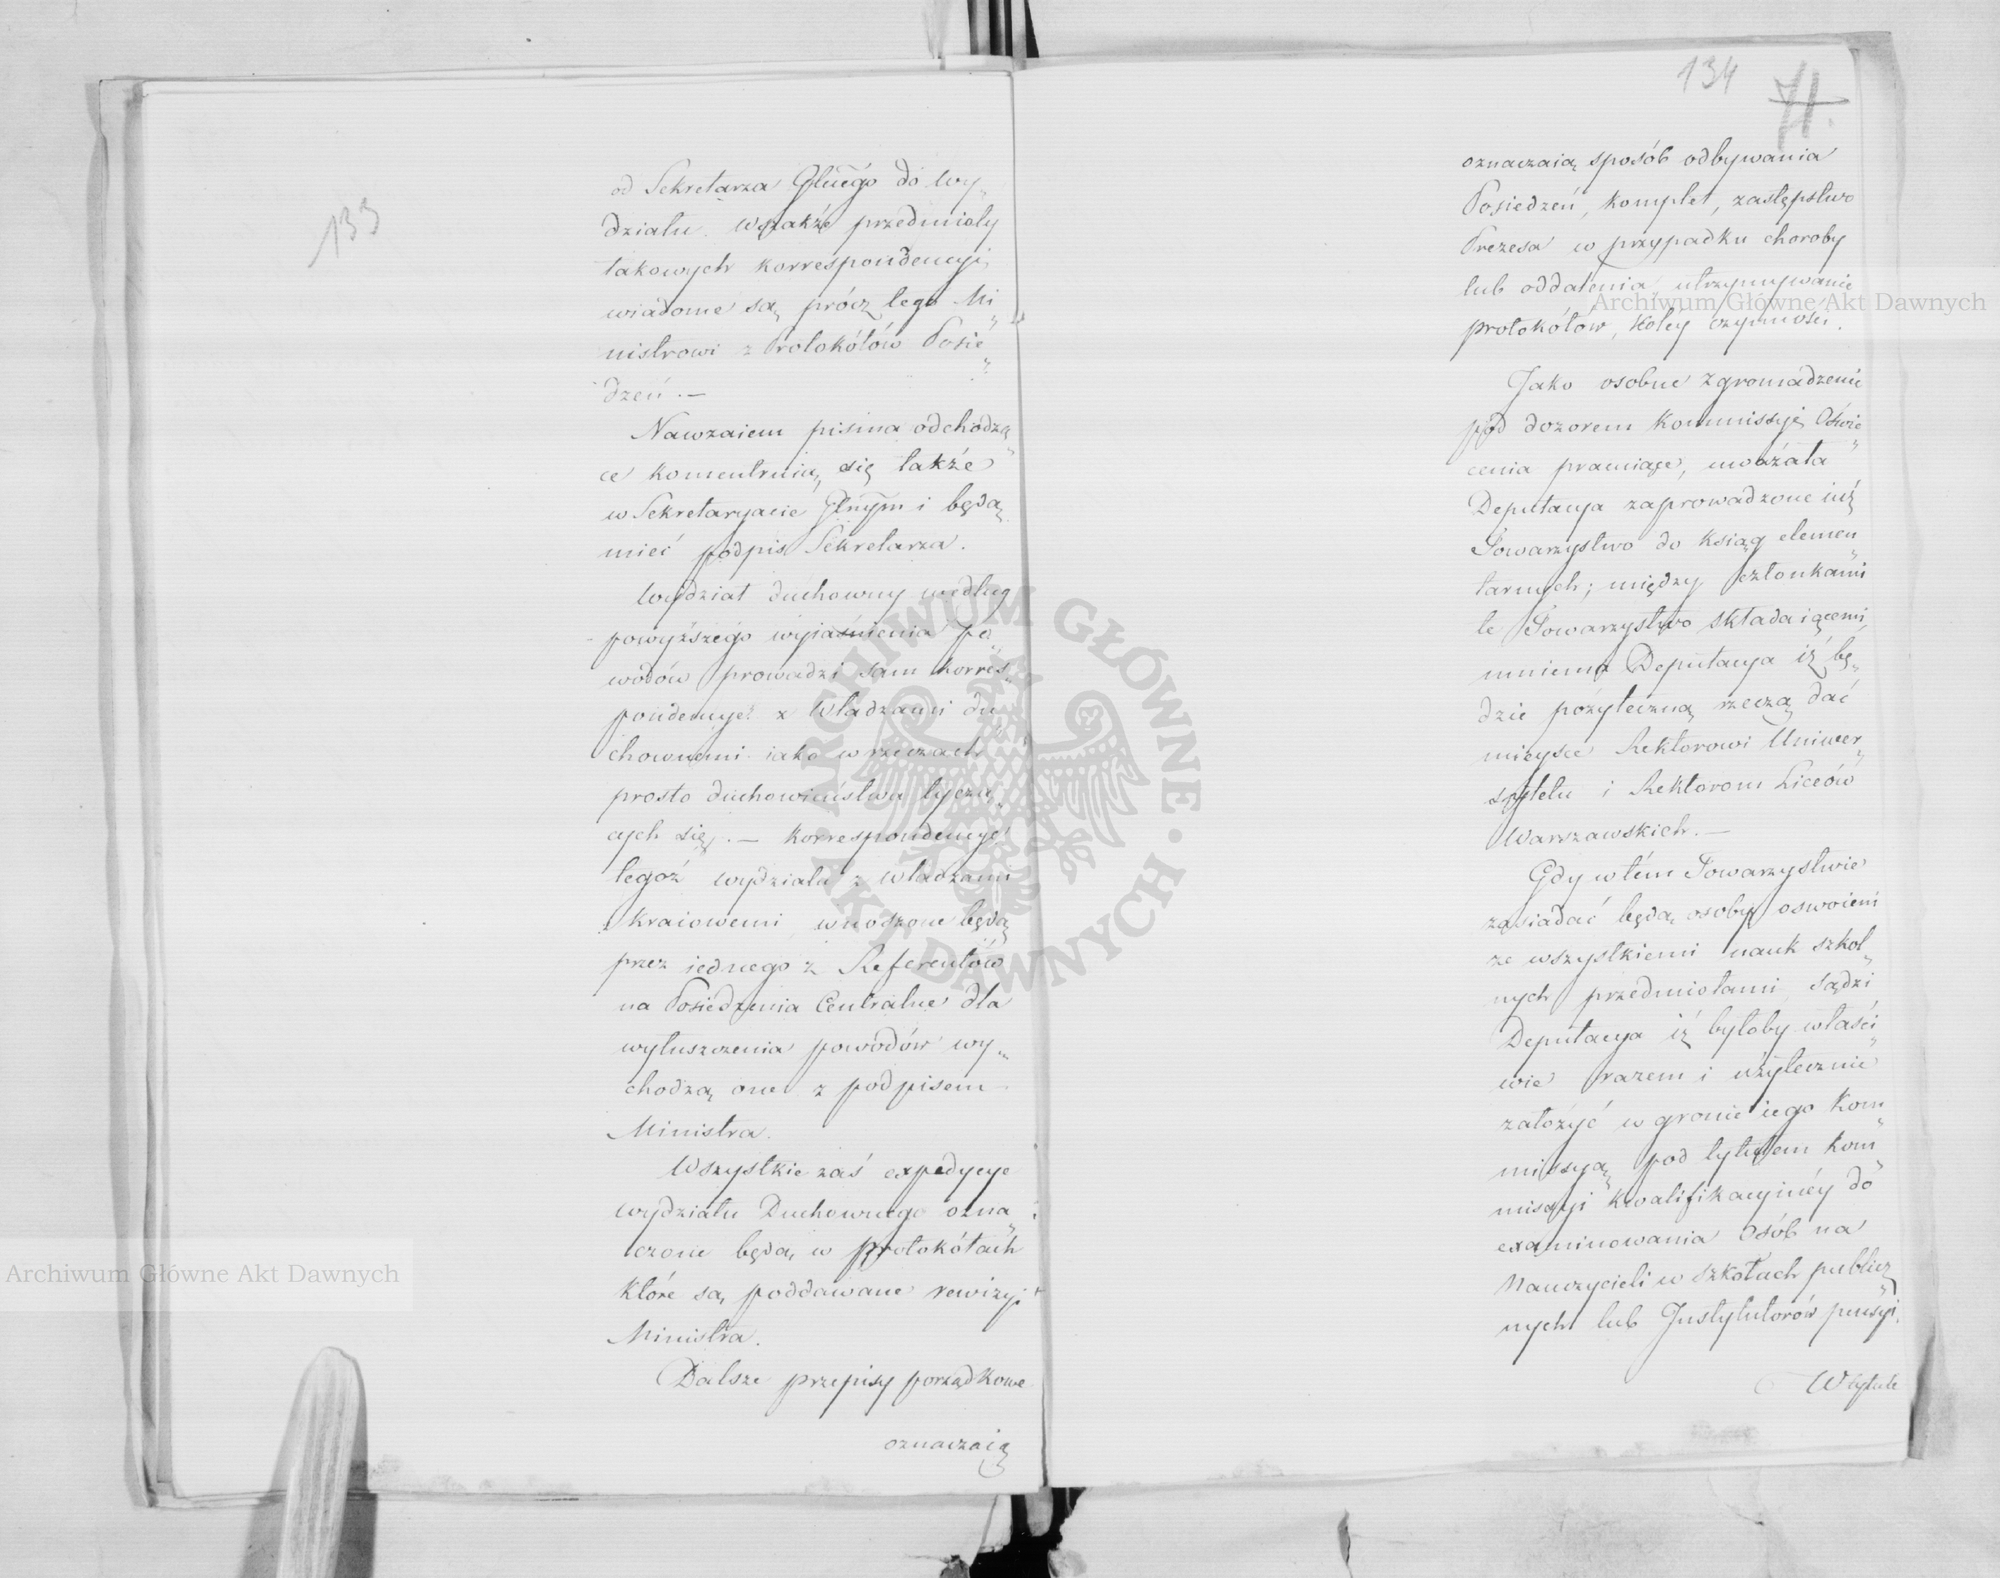 133
od Sekretarza Głnego do Wy„
działu. Wszakże przedmioty
takowych korrespondencyi,
wiadome są, prócz tego Mi„
nistrowi z Protokółów Posie„
dzeń. —
Nawzaiem pisma odchodzą„
ce koncentruią, się także
w Sekretaryacie Głnym i będą,
mieć podpis Sekretarza.
Wydział duchowny według
powyższego wyiaśnienia po„
wodów prowadzi sam korres„
pondencye z Władzami du„
chownemi iako w rzeczach
prosto duchowieństwa tyczą„
cych się. — Korrespondencye
tegoż wydziału z władzami
kraiowemi, wnoszone będą
przez iednego z Referentów
na Posiedzenia Centralne dla
wyłuszczenia powodów wy„
chodzą one z podpisem
Ministra.
Wszystkie zaś expedycye
wydziału Duchownego ozna„
czone będą, w protokółach
które są, poddawane rewizyi
Ministra.
Dalsze przepisy porządkowe
oznaczaią
134
71.
oznaczaią sposób odbywania
Posiedzeń, komplet, zastępstwo
Prezesa w przypadku choroby
lub oddalenia, utrzymywanie
protokółów, koléy czynności.
Jako osobne zgromadzenie
pod dozorem Kommissyi Oświe„
cenia pracuiące, uważała
Deputacya zaprowadzone iuż
Towarzystwo do ksiąg elemen„
tarnych; między członkami
te Towarzystwo składaiącemi,
mniema Deputacya iż bę„
dzie pożyteczną rzeczą dać
mieysce Rektorowi Uniwer„
sytetu i Rektorom Liceów
Warszawskich. —
Gdy w tém Towarzystwie
zasiadać będą, osoby oswoieni
ze wszystkiemi nauk szkol„
nych przedmiotami, sądzi
Deputacya iż byłoby właści„
wie razem i użytecznie
założyć w gronie iego Kom„
missyą, pod tytułem Kom„
missyi kwalifikacyinéy do
examinowania Osób na
Nauczycieli w szkołach publicz„
nych lub Instytutorów pensyi.
W tytule
Archiwum Główne Akt Dawnych
Archiwum Główne Akt Dawnych
ARCHIWUM GŁÓWNE · AKT DAWNYCH ·